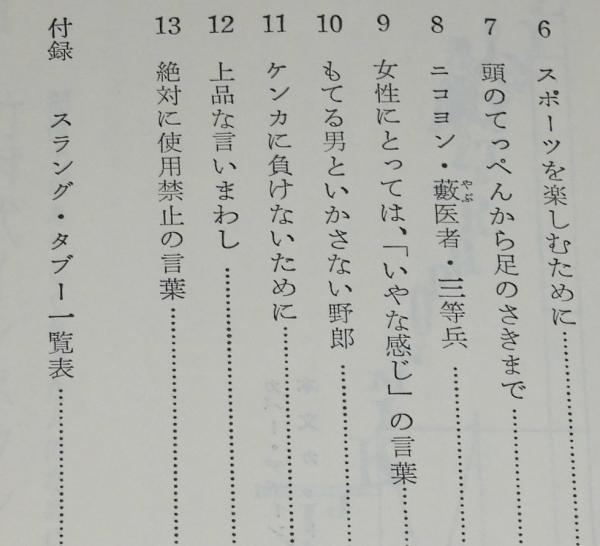 6 スポーツを楽しむために……………
7 頭のてっぺんから足のさきまで…………
8 ニコヨン・藪医者・三等兵……………
やぶ
9 女性にとっては、「いやな感じ」の言葉……
10 もてる男といかさない野郎……………
11 ケンカに負けないために………………
12 上品な言いまわし……………………
13 絶対に使用禁止の言葉………………
付録 スラング・タブー一覧表……………